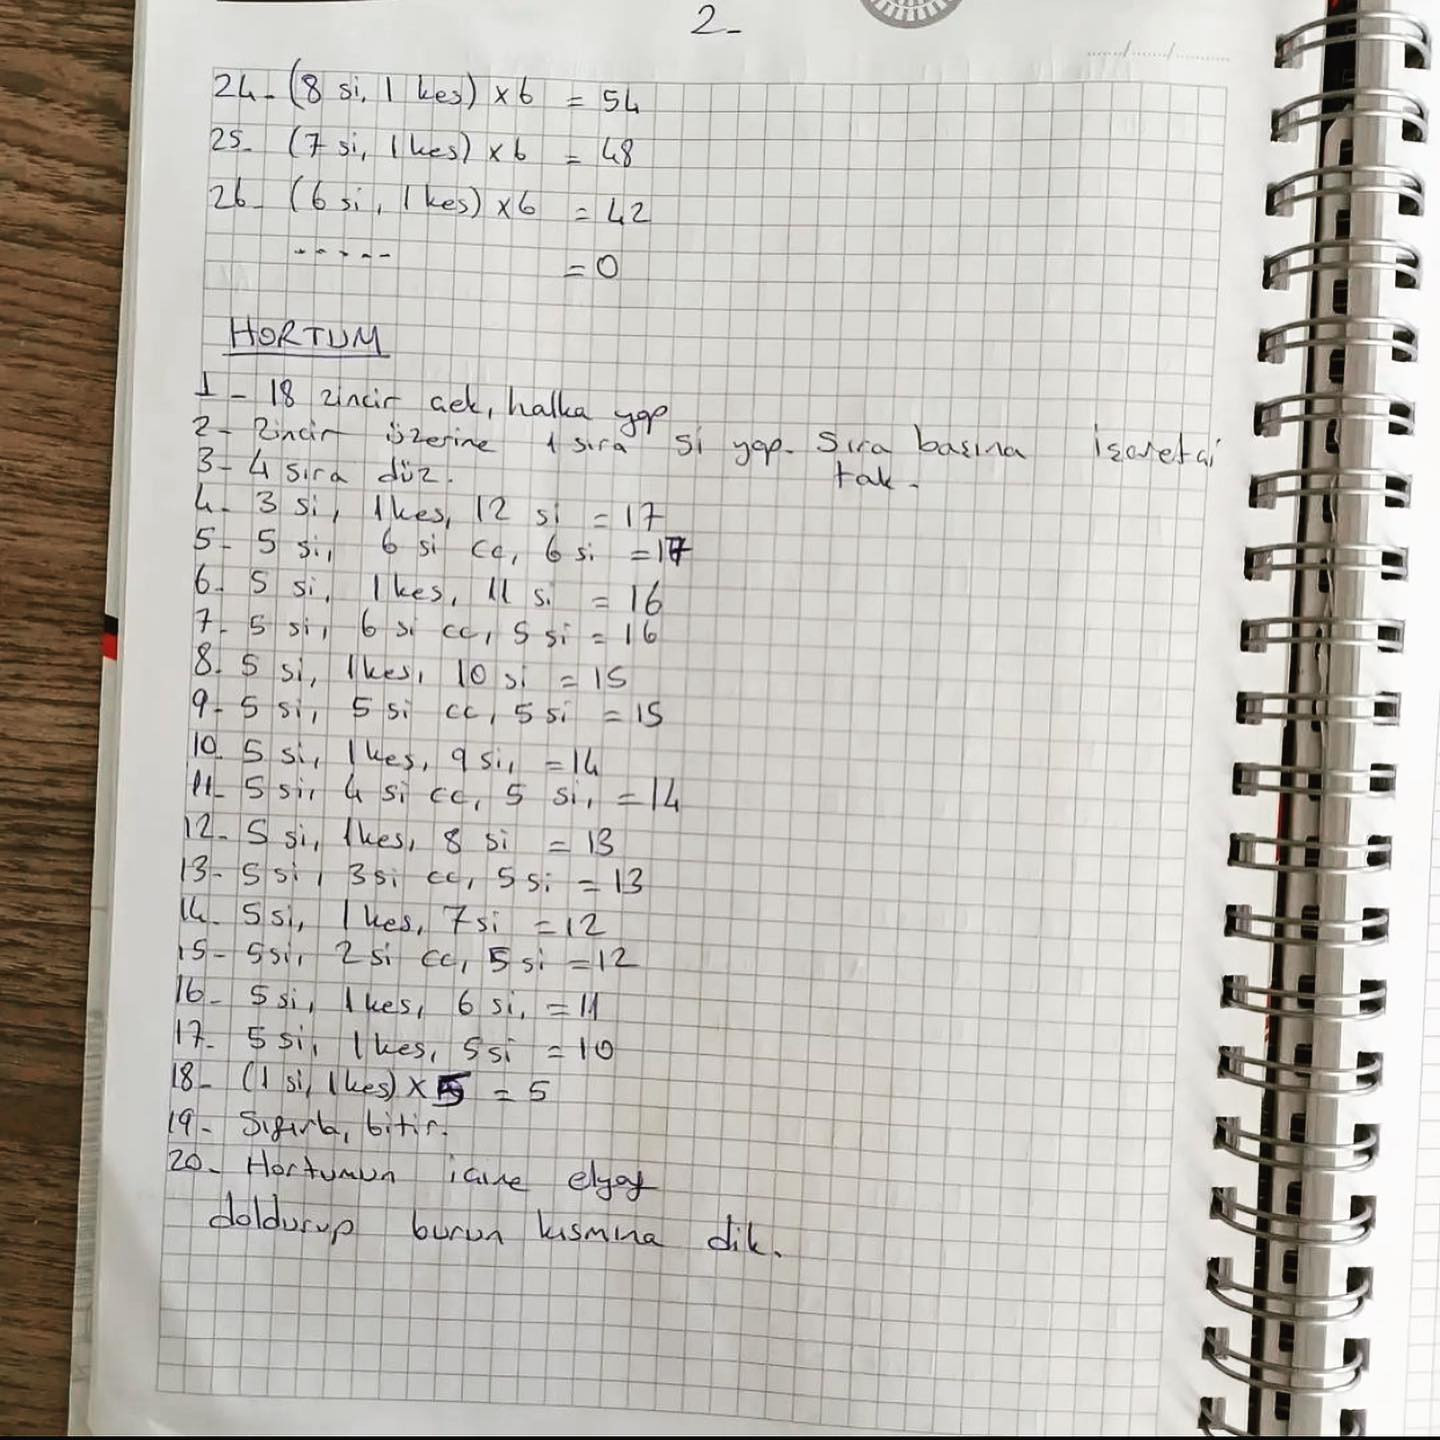 2-
24- (8 si, 1 kes) x6 = 54
25- (7 si, 1 kes) x6 = 48
26- (6 si, 1 kes) x6 = 42
..... = 0
HORTUM
1 - 18 zincir çek, halka yap
2 - Zincir üzerine 1 sıra si yap. Sıra başına işaretçi
tak.
3 - 4 sıra düz.
4 - 3 si, 1 kes, 12 si = 17
5 - 5 si, 6 si cc, 6 si = 17
6 - 5 si, 1 kes, 11 si = 16
7 - 5 si, 6 si cc, 5 si = 16
8 - 5 si, 1 kes, 10 si = 15
9 - 5 si, 5 si cc, 5 si = 15
10 - 5 si, 1 kes, 9 si, = 14
11 - 5 si, 4 si cc, 5 si, = 14
12 - 5 si, 1 kes, 8 si = 13
13 - 5 si, 3 si cc, 5 si = 13
14 - 5 si, 1 kes, 7 si = 12
15 - 5 si, 2 si cc, 5 si = 12
16 - 5 si, 1 kes, 6 si, = 11
17 - 5 si, 1 kes, 5 si = 10
18 - (1 si, 1 kes) x 5 = 5
19 - Sıfırla, bitir.
20 - Hortumun içine elyaf
doldurup burun kısmına dik.